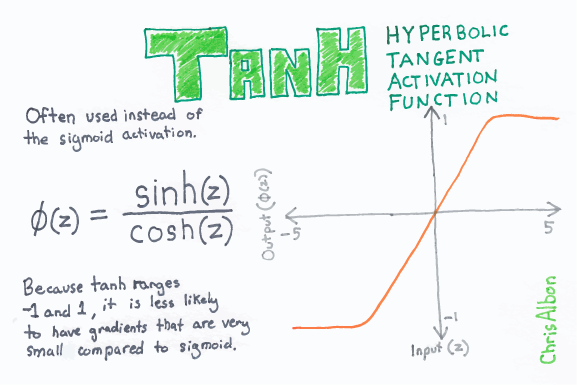 TANH
HYPERBOLIC
TANGENT
ACTIVATION
FUNCTION
Often used instead of
the sigmoid activation.
ϕ(z) = sinh(z)
cosh(z)
Because tanh ranges
-1 and 1, it is less likely
to have gradients that are very
small compared to sigmoid.
Output (ϕ(z))
1
-5
5
-1
Input (z)
ChrisAlbon